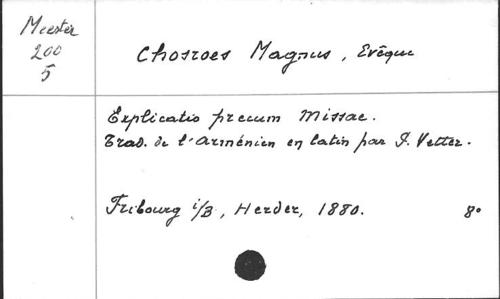 Meester
200
5
Chosroes Magnus, Evêque
Explicatio precum Missae.
Trad. de l'Arménien en latin par P. Vetter.
Fribourg i/B, Herder, 1880. 8°